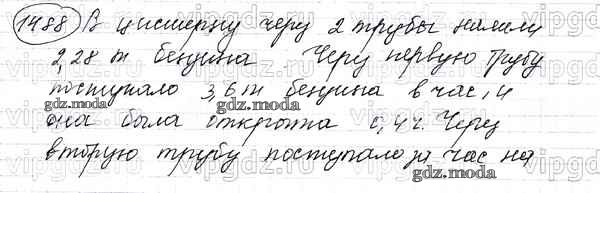 1488 В цистерну через 2 трубы налили
2,28 т бензина. Через первую трубу
поступало 3,6 т бензина в час, и
она была открыта 0,4 ч. Через
вторую трубу поступало за час на
gdz.moda
gdz.moda
gdz.moda
gdz.moda